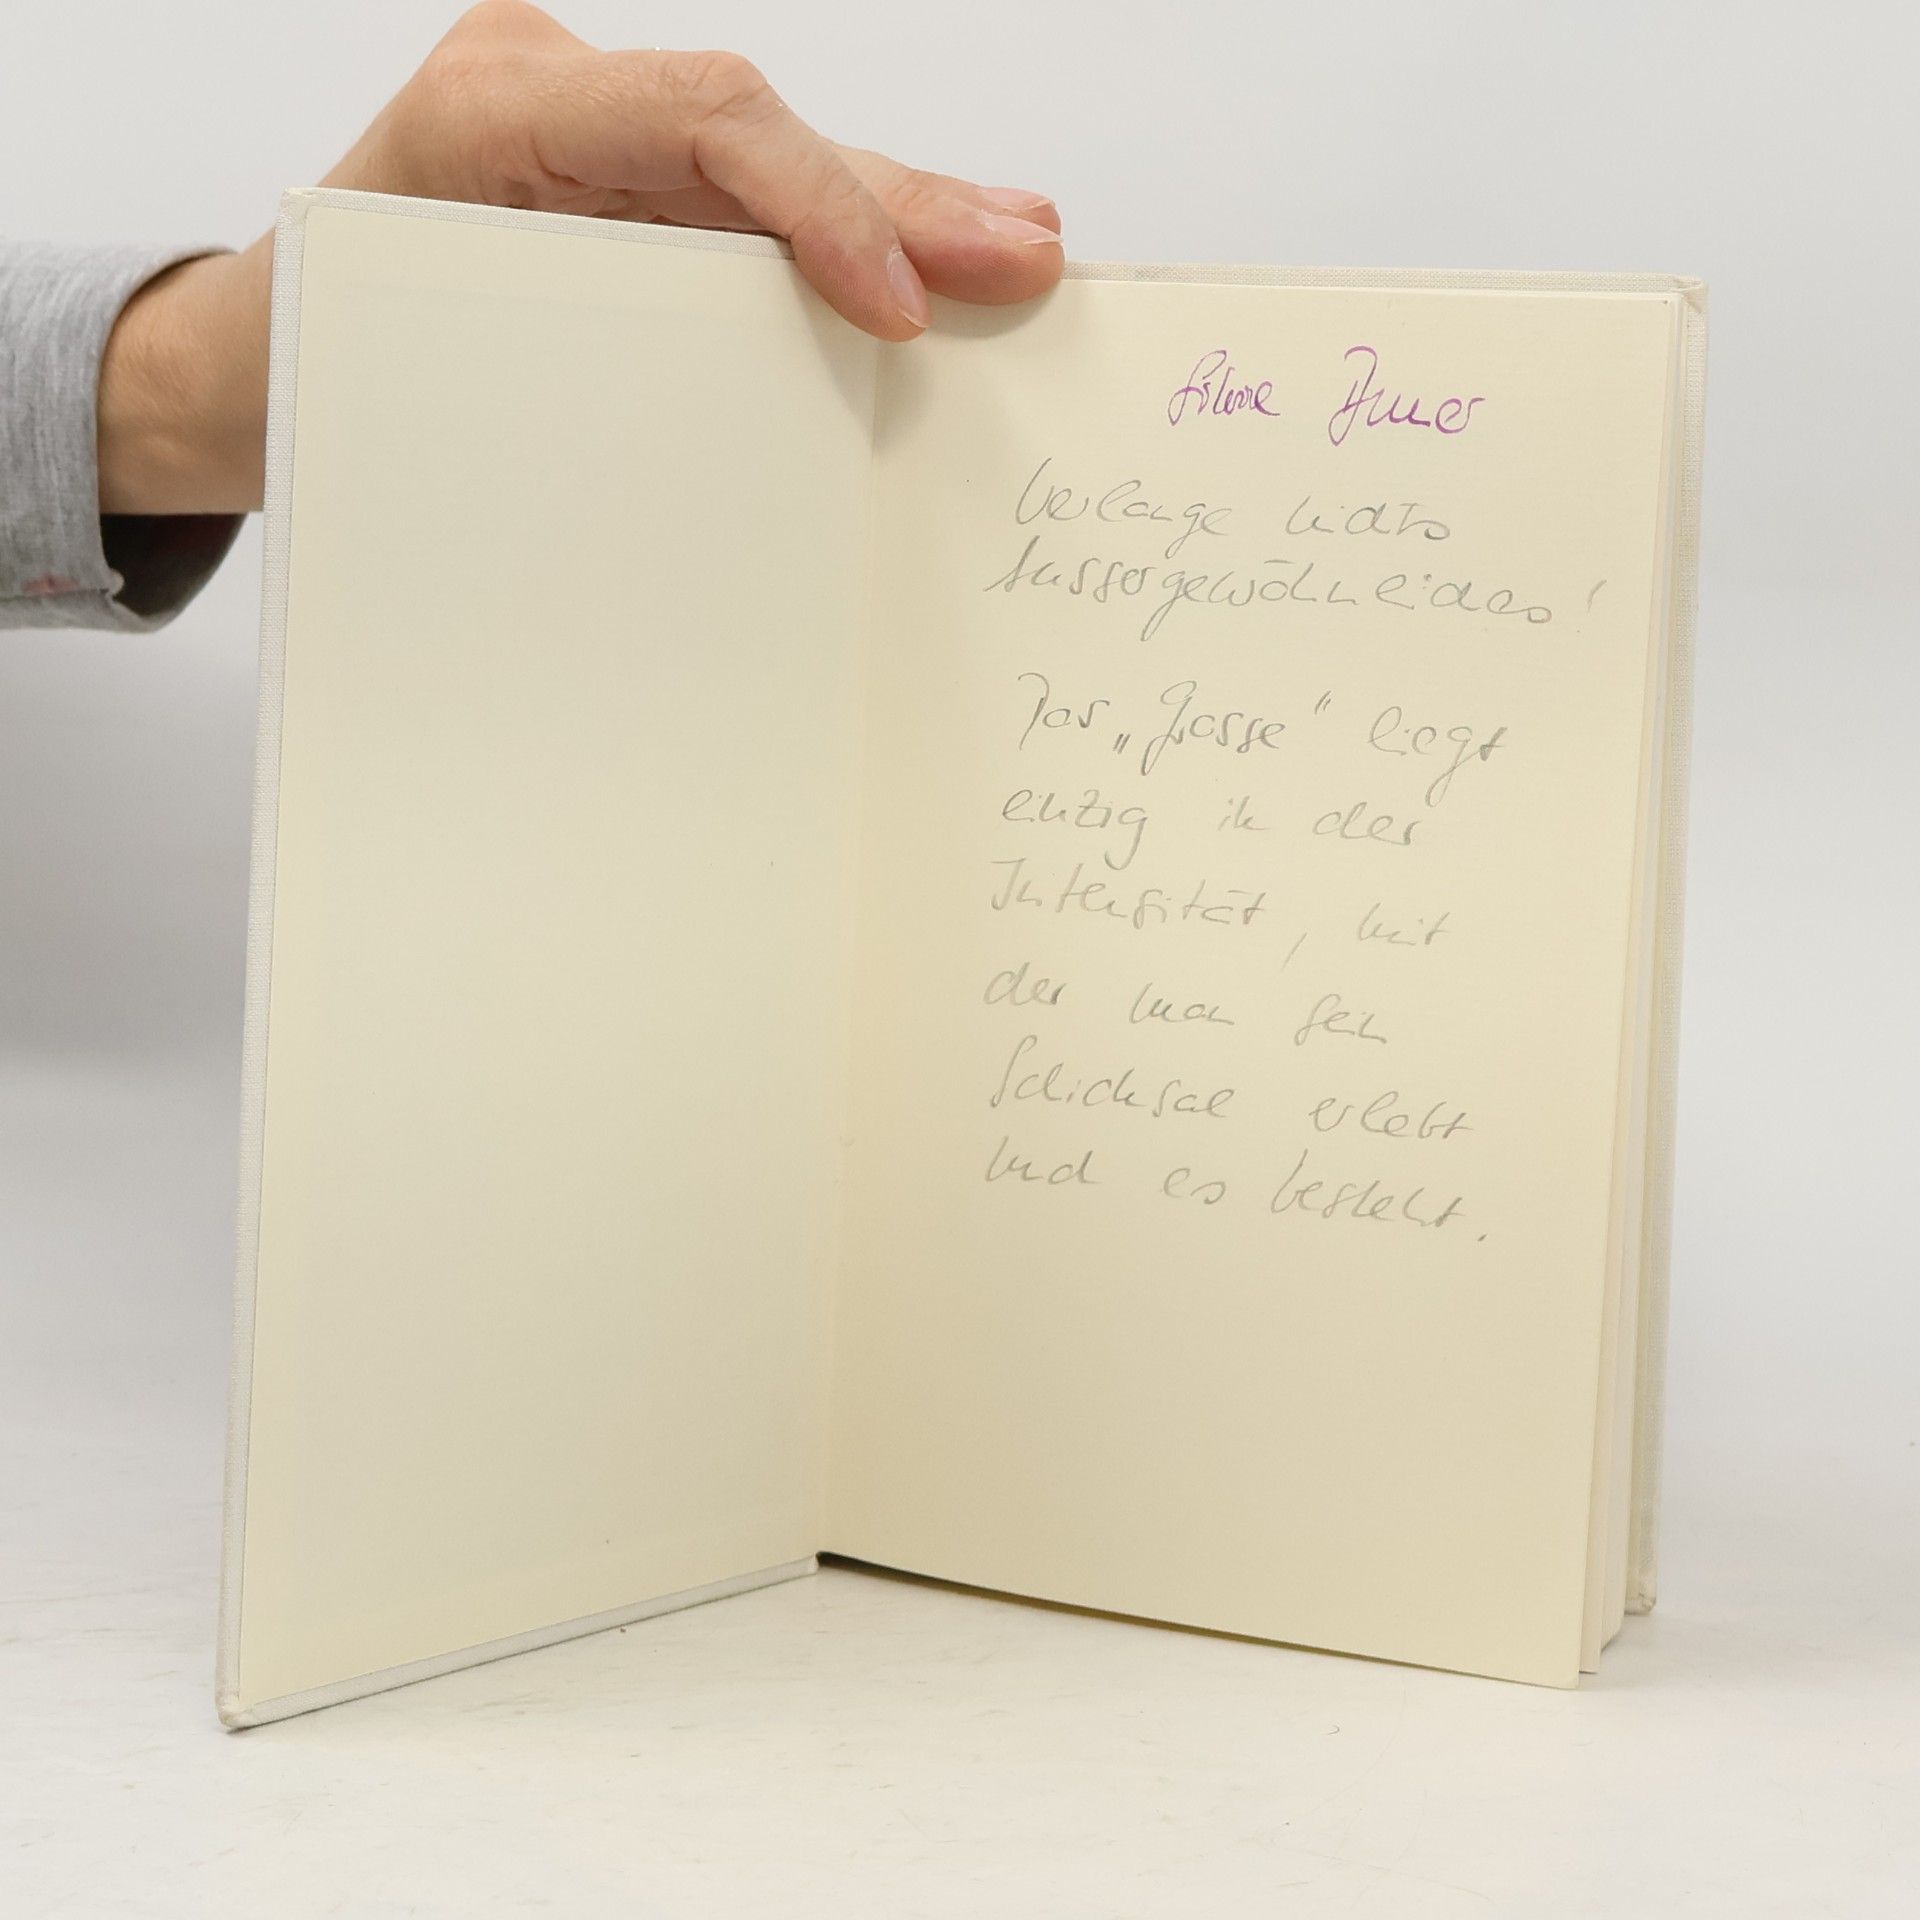 Verlange nichts
Aussergewöhnliches!
Das „Grosse“ liegt
einzig in der
Intensität, mit
der man sein
Schicksal erlebt
und es besteht.